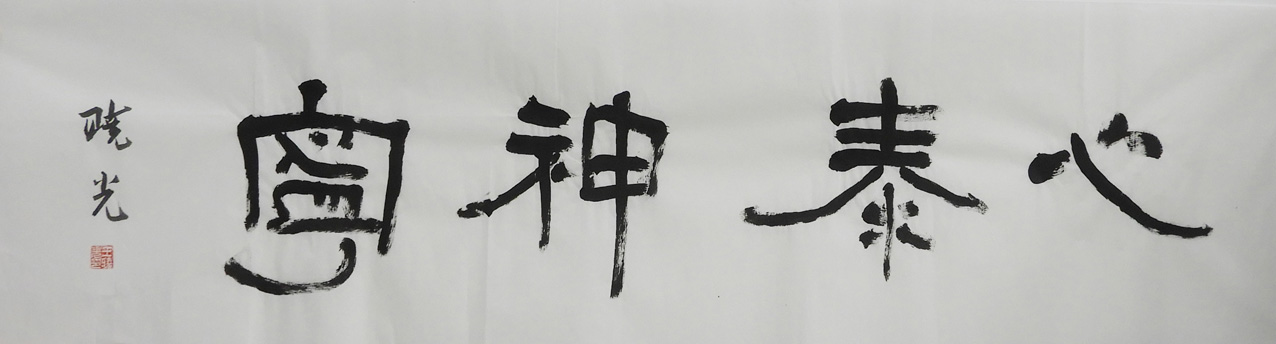 心泰神寧
曉光